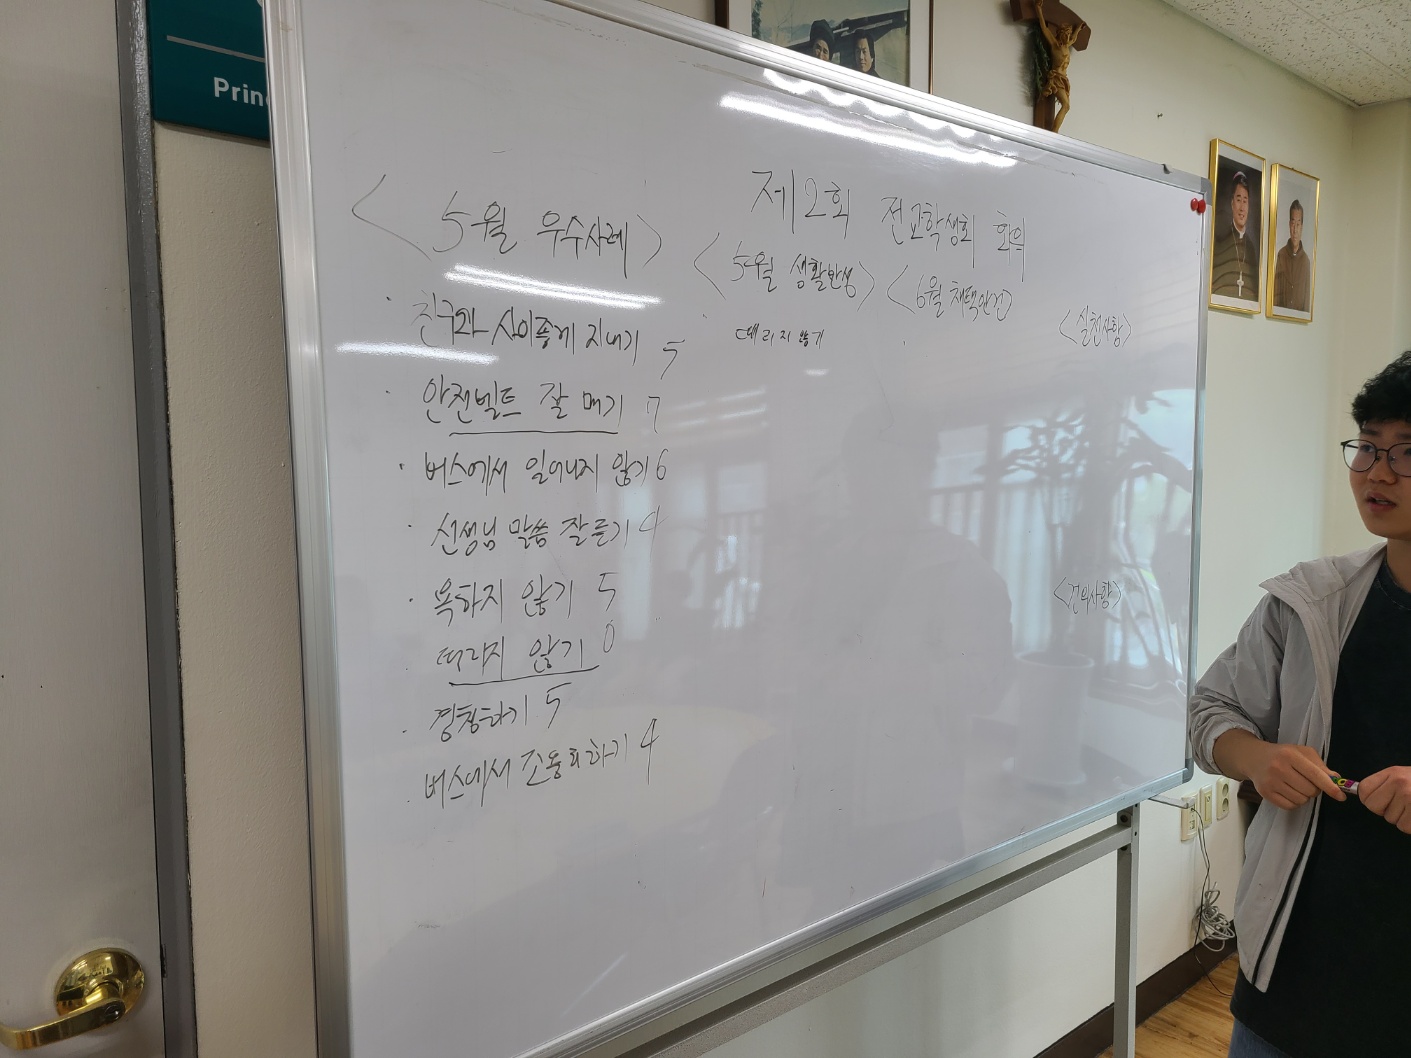 Prin
제2회 전교학생회 회의
<5월 우수사례>
· 친구와 사이좋게 지내기 5
· 안전벨트 잘 매기 7
· 버스에서 일어나지 않기 6
· 선생님 말씀 잘 듣기 4
· 욕하지 않기 5
· 때리지 않기 0
· 경청하기 5
· 버스에서 조용히하기 4
<5월 생활반성>
· 때리지 않기
<6월 채택안건>
·
<실천사항>
<건의사항>